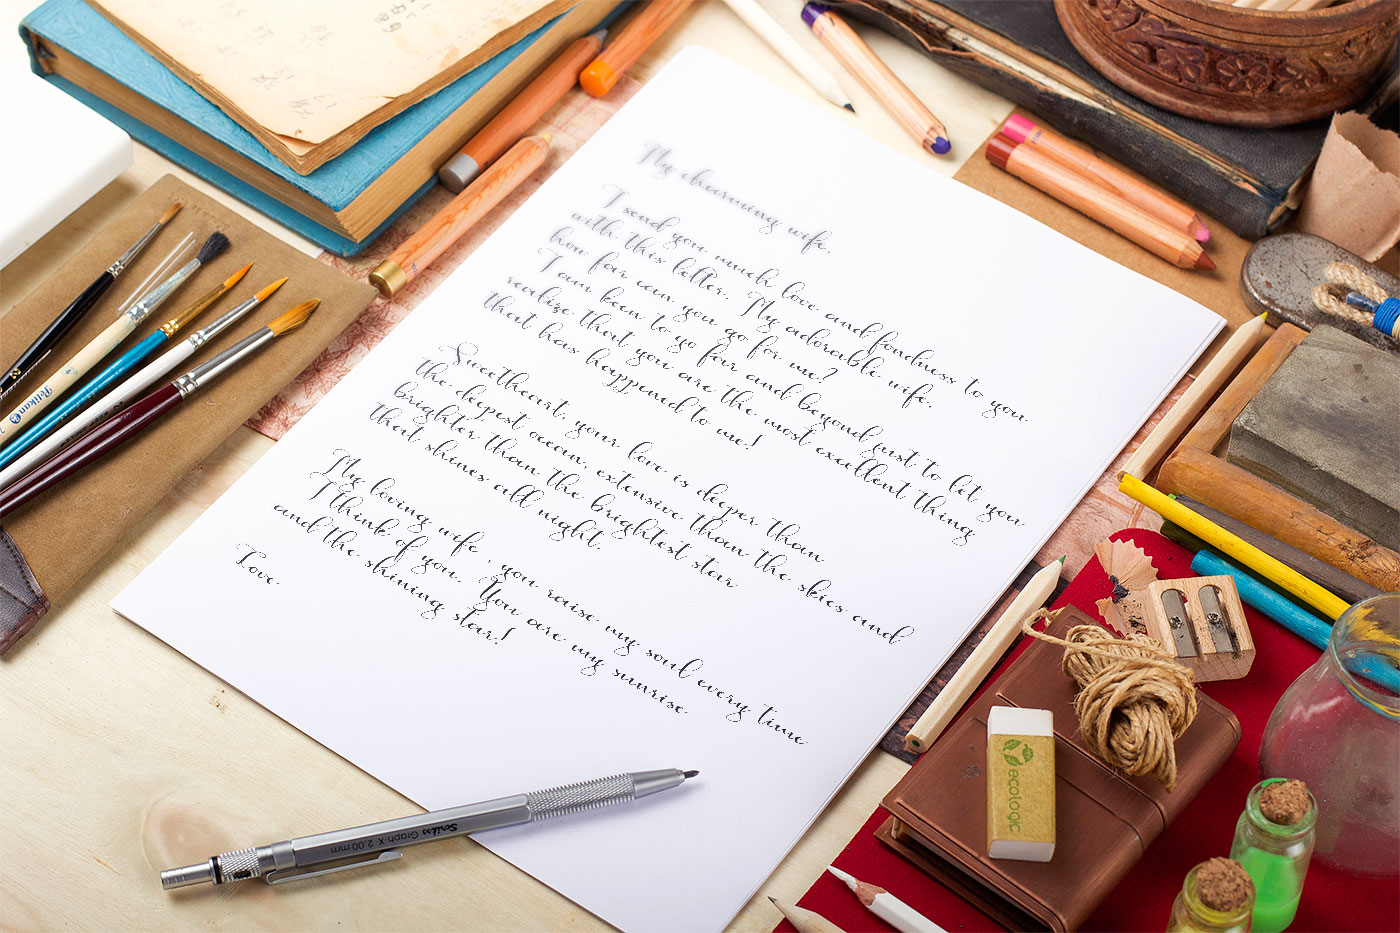 My charming wife,
I send you much love and fondness to you
with this letter. My adorable wife.
how far can you go for me?
I am keen to go far and beyond just to let you
realize that you are the most excellent thing
that has happened to me!
Sweetheart, your love is deeper than
the deepest ocean, extensive than the skies and
brighter than the brightest star
that shines all night.
My loving wife , you raise my soul every time
I think of you. You are my sunrise
and the shining star!
Love.
Scrikss Graph-X 2.00 mm
ecologic
Pelikan